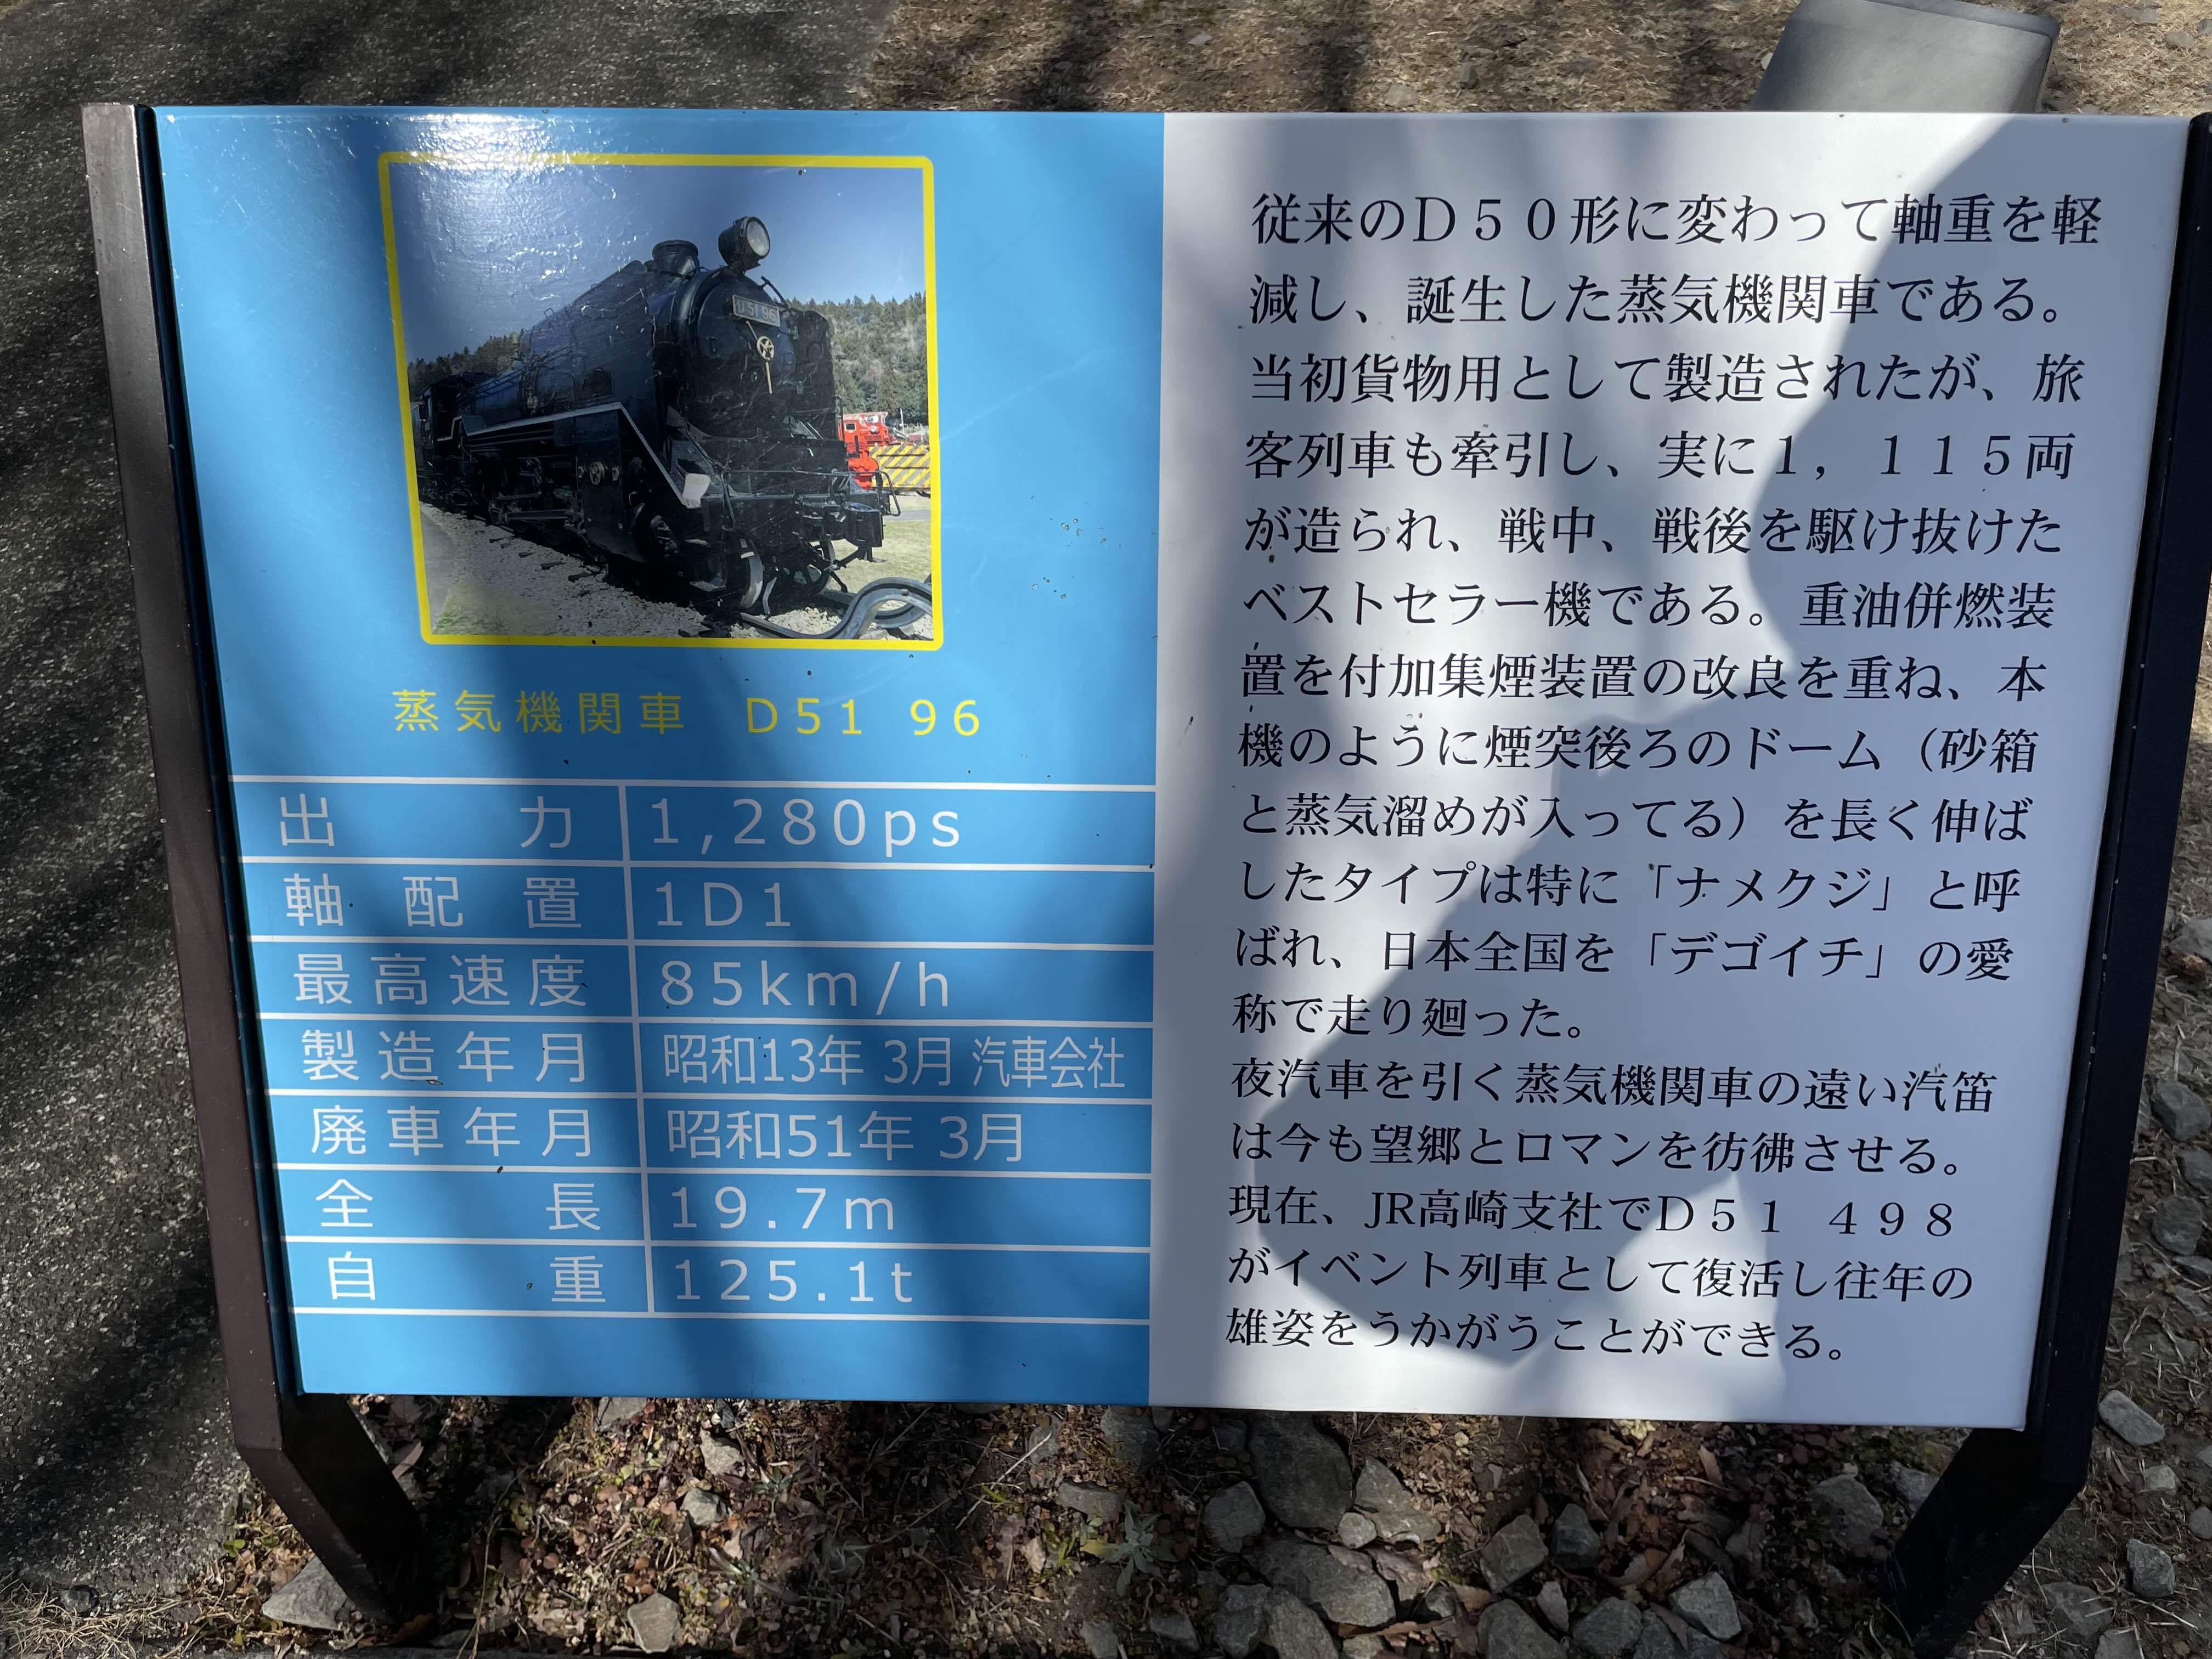 D51 96
蒸気機関車 D51 96
出力 1,280ps
軸配置 1D1
最高速度 85km/h
製造年月 昭和13年 3月 汽車会社
廃車年月 昭和51年 3月
全長 19.7m
自重 125.1t
従来のD50形に変わって軸重を軽
減し、誕生した蒸気機関車である。
当初貨物用として製造されたが、旅
客列車も牽引し、実に1,115両
が造られ、戦中、戦後を駆け抜けた
ベストセラー機である。重油併燃装
置を付加集煙装置の改良を重ね、本
機のように煙突後ろのドーム（砂箱
と蒸気溜めが入ってる）を長く伸ば
したタイプは特に「ナメクジ」と呼
ばれ、日本全国を「デゴイチ」の愛
称で走り廻った。
夜汽車を引く蒸気機関車の遠い汽笛
は今も望郷とロマンを彷彿させる。
現在、JR高崎支社でD51 498
がイベント列車として復活し往年の
雄姿をうかがうことができる。